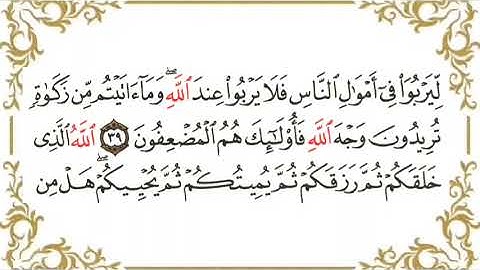 لِّيَرۡبُوَاْ فِيٓ أَمۡوَٰلِ ٱلنَّاسِ فَلَا يَرۡبُواْ عِندَ ٱللَّهِۖ وَمَآ ءَاتَيۡتُم مِّن زَكَوٰةٖ
تُرِيدُونَ وَجۡهَ ٱللَّهِ فَأُوْلَٰٓئِكَ هُمُ ٱلۡمُضۡعِفُونَ ٣٩ ٱللَّهُ ٱلَّذِي
خَلَقَكُمۡ ثُمَّ رَزَقَكُمۡ ثُمَّ يُمِيتُكُمۡ ثُمَّ يُحۡيِيكُمۡۖ هَلۡ مِن